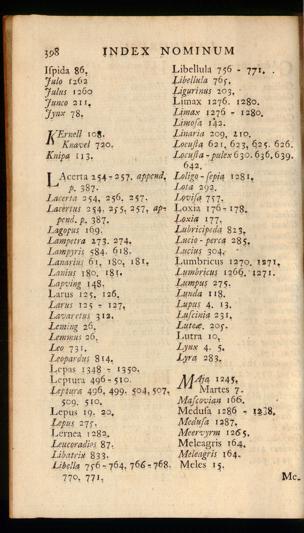 398 INDEX NOMINUM
Ispida 86.
Julo 1262
Julus 1260
Junco 211.
Jynx 78.
KErnell 108.
Knavel 720.
Knipa 113.
LAcerta 254-257. append.
p. 387.
Lacerta 254, 256. 257.
Lacertus 254, 255, 257, ap-
pend. p. 387.
Lagopus 169.
Lampetra 273. 274.
Lampyris 584. 618.
Lanarius 61, 180, 181,
Lanius 180, 181.
Lapving 148.
Larus 125, 126.
Larus 125 - 127.
Lavaretus 312.
Leming 26.
Lemmus 26.
Leo 731.
Leopardus 814.
Lepas 1348 - 1350.
Leptura 496-510.
Leptura 496, 499. 504, 507,
509, 510.
Lepus 19. 20.
Lepus 275.
Lernea 1282.
Leucoradios 87.
Libateis 833.
Libella 756-764, 766-768.
770, 771.
Libellula 756 - 771.
Libellula 765.
Ligurinus 203.
Limax 1276. 1280.
Limax 1276 - 1280.
Limosa 142.
Linaria 209, 210.
Locusta 621, 623, 625. 626.
Locusta-pulex 630. 636, 639.
642.
Loligo-sepia 1281.
Lota 292.
Lovisa 757.
Loxia 176-178.
Loxia 177.
Lubricipeda 823.
Lucio-perca 285.
Lucius 304.
Lumbricus 1270, 1271.
Lumbricus 1266. 1271.
Lumpus 275.
Lunda 118.
Lupus 4. 13.
Luscinia 231.
Luteæ. 205.
Lutra 10.
Lynx 4. 5.
Lyra 283.
MAja 1245.
Martes 7.
Mascovian 166.
Medusa 1286 - 1288.
Medusa 1287.
Meervyrm 1265.
Meleagris 164.
Meleagris 164.
Meles 15.
Me-